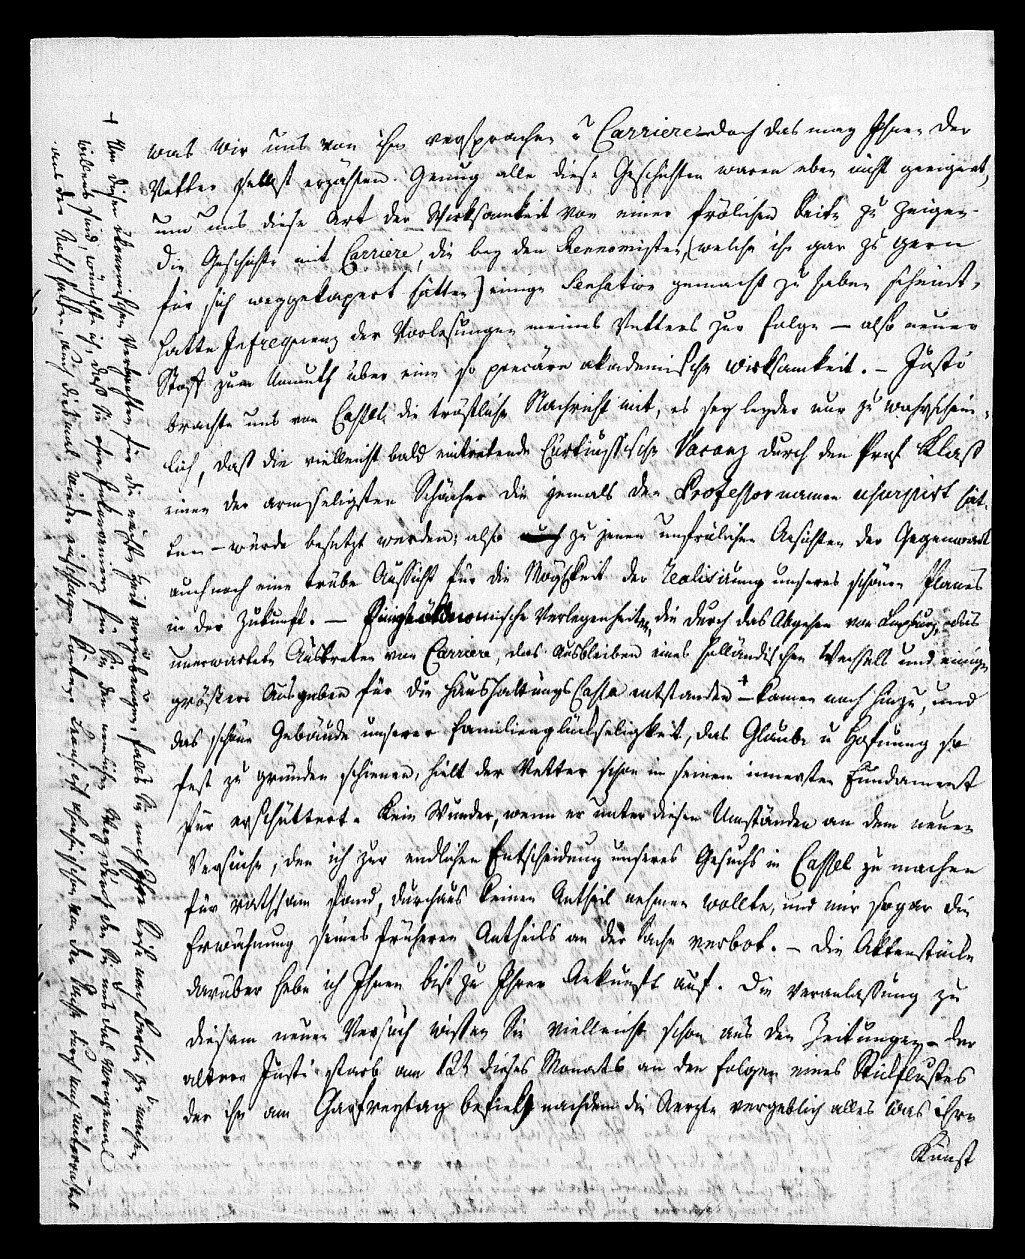 was wir uns von ihm versprachen u Carriere doch das mag Ihnen der
Vetter selbst erzählen. Genug alle diese Geschichten waren eben nicht geeignet,
um uns diese Art der Wirksamkeit von einer frölichen Seite zu zeigen.
Die Geschichte mit Carriere, die bey den Rennomisten (welche ihn gar zu gern
für sich weggekapert hätten) einige Sensation gemacht zu haben scheint,
hatte Infrequenz der Vorlesungen meines Vetters zur Folge — also neuer
Stoff zum Unmuth über eine so precäre akademische Wirksamkeit. — Justi
brachte uns von Cassel die tröstliche Nachricht mit, es sey leyder nur zu wahrschein-
lich, daß die vielleicht bald eintretende Curtiussische Vacanz durch den Prof. Klaß
einen der armseligsten Schächer die jemals den Professornamen usurpirt hät-
ten — würde besetzt werden; also zu jenen unfrölichen Ansichten der Gegenwart
auch noch eine trübe Aussicht für die Möglichkeit der Realisirung unseres schönen Planes
in der Zukunft. — Einige ökonomische Verlegenheiten, die durch das Abgehen von das
unerwartete Austreten von Carriere, das Ausbleiben eines holländischen Wechsels und einige
größere Ausgaben für die Haushaltungs Cassa entstanden + — kamen noch hinzu, und
das schöne Gebäude unserer Familienglückseligkeit, das Glaube u Hofnung so
fest zu gründen schienen, hielt der Vetter schon in seinem innersten Fundament
für erschüttert. Kein Wunder, wenn er unter diesen Umständen an dem neuen
Versuche, den ich zur endlichen Entscheidung unseres Gesuchs in Cassel zu machen
für rathsam fand, durchaus keinen Antheil nehmen wollte, und mir sogar die
Erwähnung seines früheren Antheils an der Sache verbot. — Die Aktenstücke
darüber hebe ich Ihnen biß zu Ihrer Ankunft auf. Die Veranlaßung zu
diesem neuen Versuch wissen Sie vielleicht schon aus den Zeitungen — Der
ältere Justi starb am 12t dieses Monats an den Folgen eines
der ihn am Charfreytag befiel, nachdem die Aerzte vergeblich alles was ihre
Kunst
+ Um diesen ökonomischen Verlegenheiten für die nächste Zeit vorzubeugen, falls Sie noch Ihre Reise nach Berlin zu machen
willens sind wünschte ich, daß Sie ohne für Sie den nemlichen Weg durch den Sie uns das Vorigemal
aus der Noth halfen, auch diesmal wieder einschlagen könten.